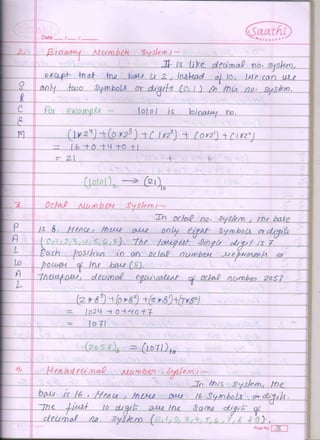 Saathi
Date __/__/__
2. Binary Number System :-
It is like decimal no. system,
except that the base is 2, instead of 10. We can use
only two symbols or digits (0, 1) in this no. system.
For example - 10101 is binary no.
(1×2⁴) + (0×2³) + (1×2²) + (0×2¹) + (1×2⁰)
= 16 + 0 + 4 + 0 + 1
= 21
(10101)₂ → (21)₁₀
3. Octal Number System :-
In octal no. system, the base
is 8. Hence, there are only eight symbols or digits
(0,1,2,3,4,5,6,7). The largest single digit is 7.
Each position in an octal number represents a
power of the base (8).
Therefore, decimal equivalent of octal number 2057
(2×8³) + (0×8²) + (5×8¹) + (7×8⁰)
= 1024 + 0 + 40 + 7
= 1071
(2057)₈ = (1071)₁₀
4. Hexadecimal Number System :-
In this system, the
base is 16. Hence, there are 16 symbols or digits.
The first 10 digits are the same digits of
decimal no. system (0,1,2,3,4,5,6,7,8,9).
Page No.
P
A
L
W
A
L